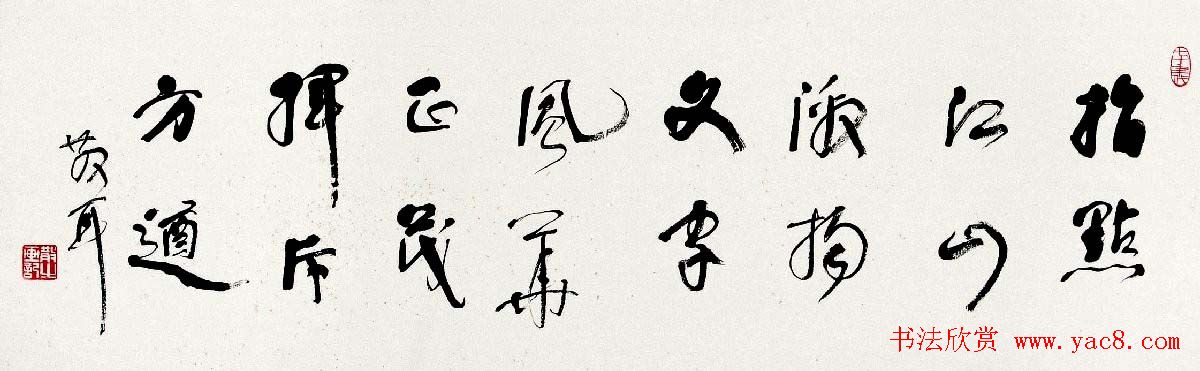 指點
江山
激揚
文字
風華
正茂
揮斥
方遒
散耳
书法欣赏 www.yac8.com